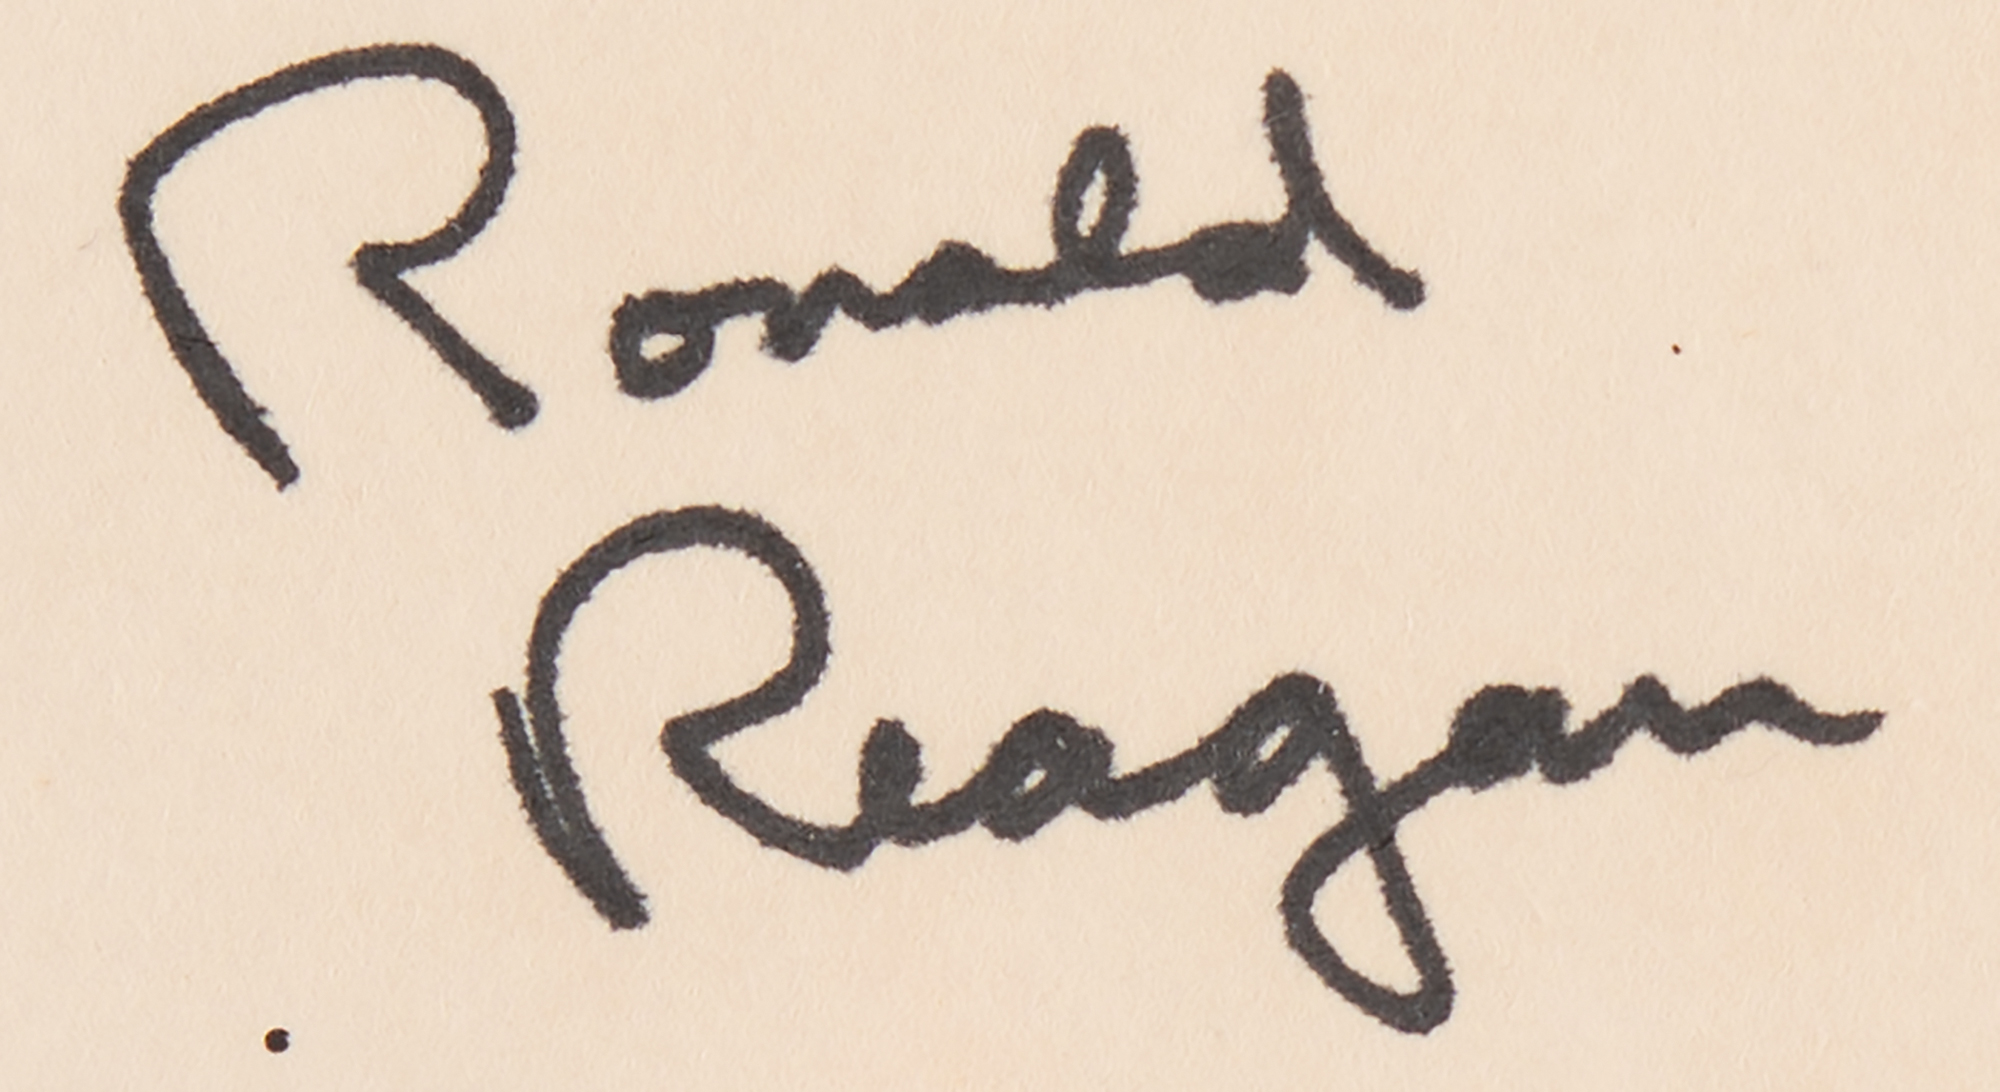 Ronald
Reagan